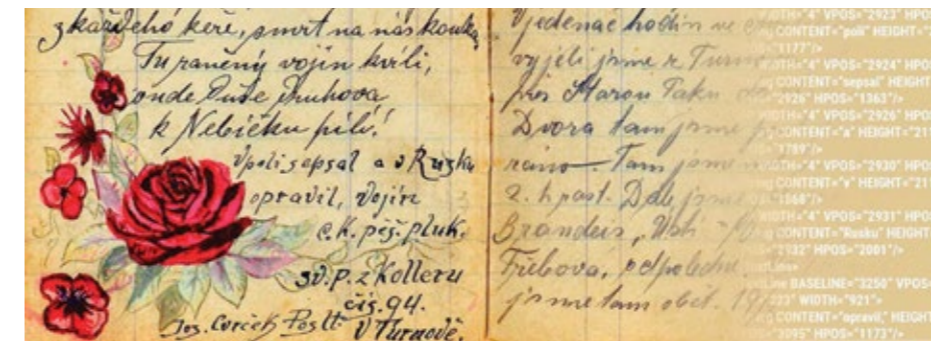 z každého keře, smrt na nás kouká
Tu raněný vojín kvílí,
onde Duše druhova
k Nebíčku pílí!
V poli sepsal a v Rusku
opravil, Vojín
c. k. pěš. pluk.
sv. p. z Kolleru
čís. 94.
Jos. Cvrček Postt. V Turnově.
V jedenác hodin ve
vyjeli jsme z Turn
přes Starou Paku
Dvora tam jsme
ráno – Tam jsme
2. h past. Dale jsme
Brandeis, Usti -
Třebova, odpoledne
jsme tam oběd. 19
WIDTH="4" VPOS="2923" HPO
CONTENT="poli" HEIGHT="2
"1177"/>
WIDTH="4" VPOS="2924" HPO
CONTENT="sepsal" HEIGHT
"2926" HPOS="1363"/>
WIDTH="4" VPOS="2926" HPO
CONTENT="a" HEIGHT="21
"1789"/>
WIDTH="4" VPOS="2930" HPO
CONTENT="v" HEIGHT="21
"1868"/>
WIDTH="4" VPOS="2931" HPO
CONTENT="Rusku" HEIGHT
"2932" HPOS="2001"/>
BASELINE="3250" VPOS
WIDTH="921">
CONTENT="opravil," HEIGHT
"3095" HPOS="1173"/>